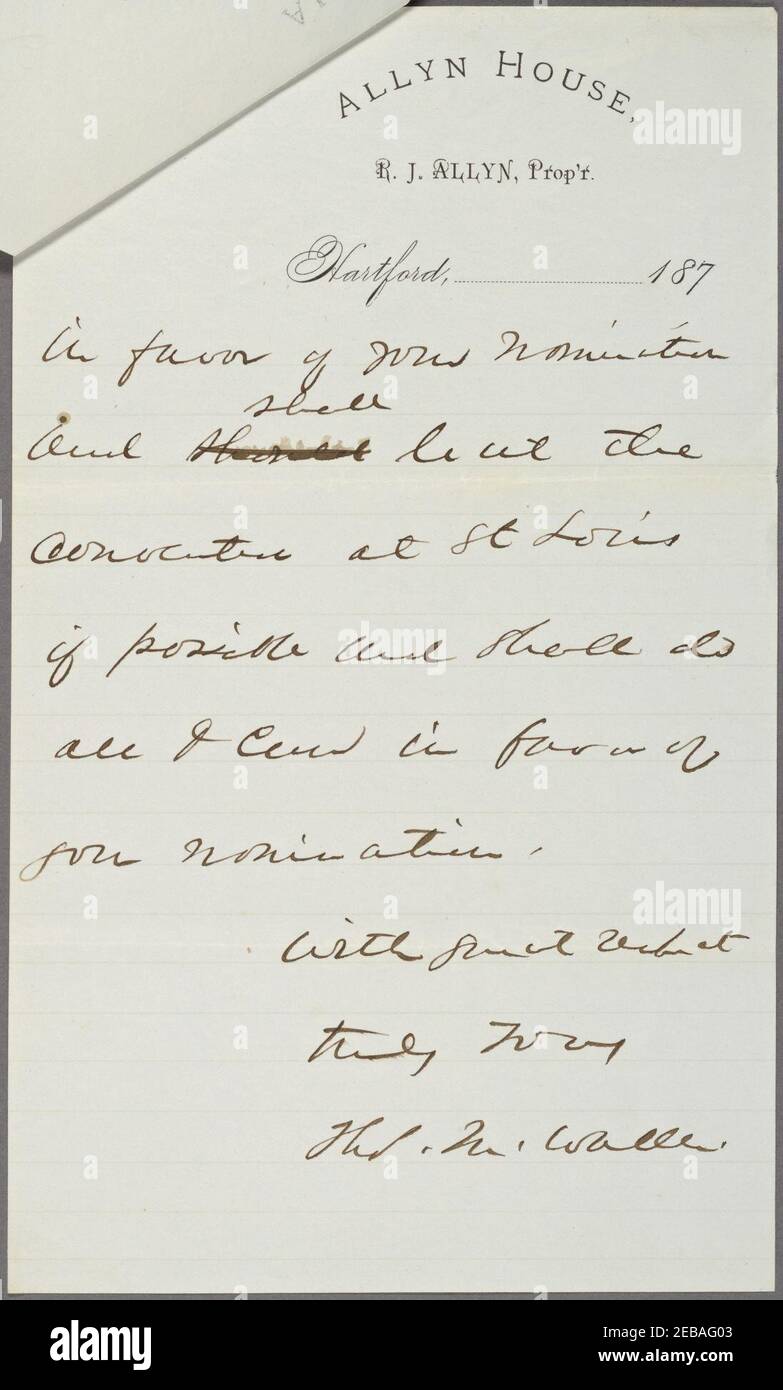 ALLYN HOUSE,
R. J. ALLYN, Prop'r.
Hartford, 187
in favor of your nomination
shall
and should be at the
Convention at St Louis
if possible and shall do
all I can in favor of
your nomination.
With great respect
truly yours
Tho. M. Waller.
alamy
Image ID: 2EBAG03
www.alamy.com